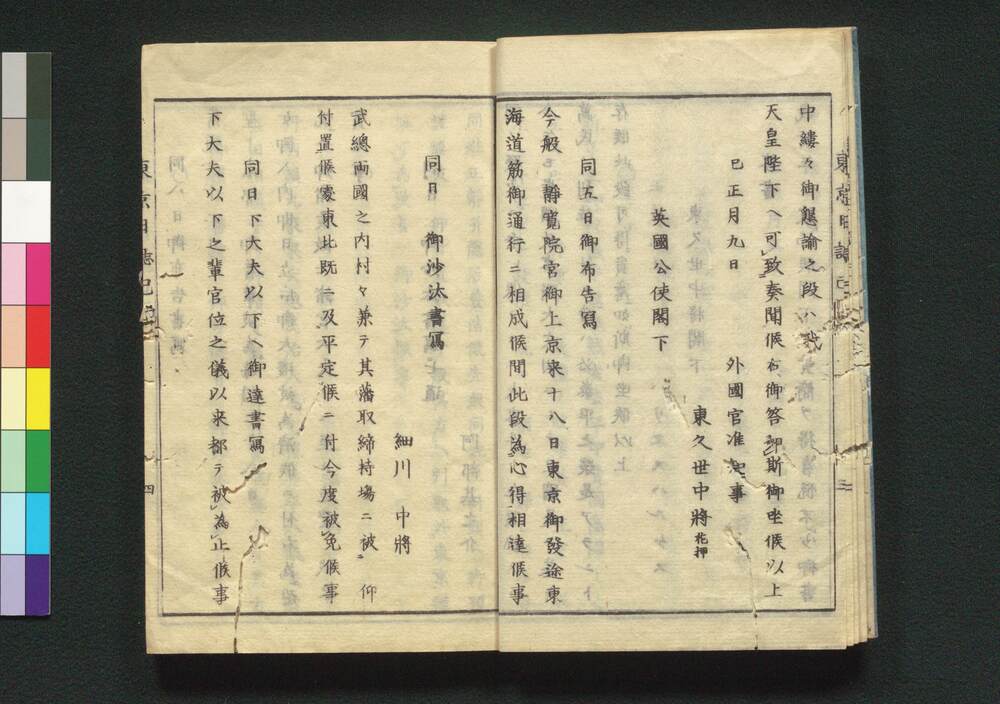 中縷々御懇諭之段ハ我
天皇陛下ヘ可致奏聞候右御答如斯御坐候以上
巳正月九日　外國官准知事
東久世中將花押
英國公使閣下
同五日御布告寫
今般　靜寬院宮御上京来十八日東京御發途東
海道筋御通行ニ相成候間此段為心得相達候事
同日　御沙汰書寫
細川　中將
武總両國之内村々兼テ其藩取締持場ニ被　仰
付置候處東北既ニ及平定候ニ付今度被免候事
同日下大夫以下ヘ御達書寫
下大夫以下之輩官位之儀以来都テ被為止候事
東京日誌
三
東京日誌
四